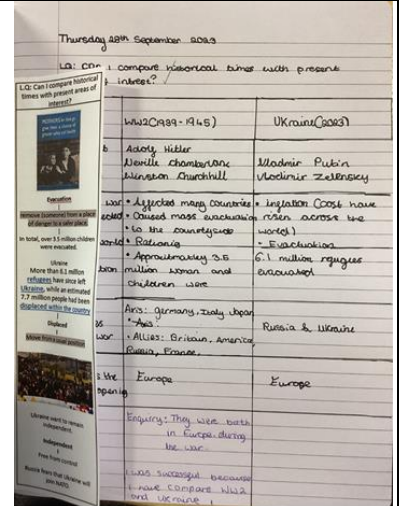 Thursday 28th September 2023
LQ: Can I compare historical times with present
intrest?
L.Q: Can I compare historical
times with present areas of
interest?
Evacuation
remove (someone) from a place
of danger to a safer place.
In total, over 3.5 million children
were evacuated.
Ukraine
More than 6.1 million
refugees have since left
Ukraine, while an estimated
7.7 million people had been
displaced within the country
Displaced
Move from a usual position
Ukraine want to remain
independent.
Independent
Free from control
Russia fears that Ukraine will
join NATO
WW2(1939-1945)
Ukraine(2023)
Adolf Hitler
Neville Chamberlane
Winston Churchhill
Vladmir Putin
Vlodimir Zelensky
war
world
• Affected many countries
• Caused mass evacuation
• to the countryside
• Rationing
• Approxmatley 3.5
million woman and
children were
• Inflation (cost have
risen across the
world)
• Evactuation
6.1 million refugies
evacuated
war
Axis: Germany, Italy, Japan
• Axis:
• Allies: Britain, America,
Russia, France.
Russia & Ukraine
the
Europe
Europe
Enquiry: They were both
in Europe during
the war.
I was successful because
I have compare WW2
and Ukraine